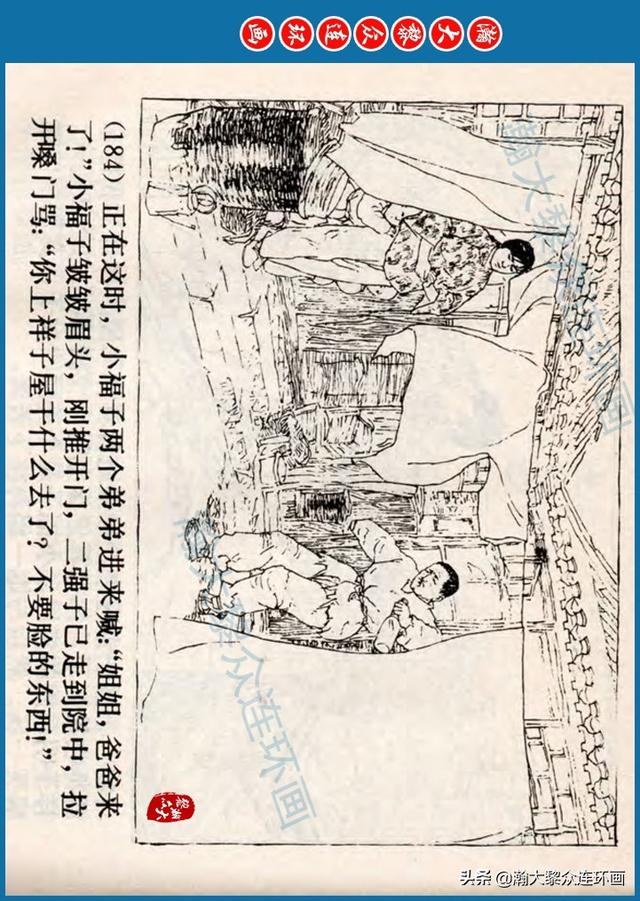 瀚大黎众连环画
(184) 正在这时，小福子两个弟弟进来喊：“姐姐，爸爸来
了！”小福子皱皱眉头，刚推开门，二强子已走到院中，拉
开嗓门骂：“你上祥子屋干什么去了？不要脸的东西！”
瀚大黎众连环画
瀚大黎众连环画
头条 @瀚大黎众连环画